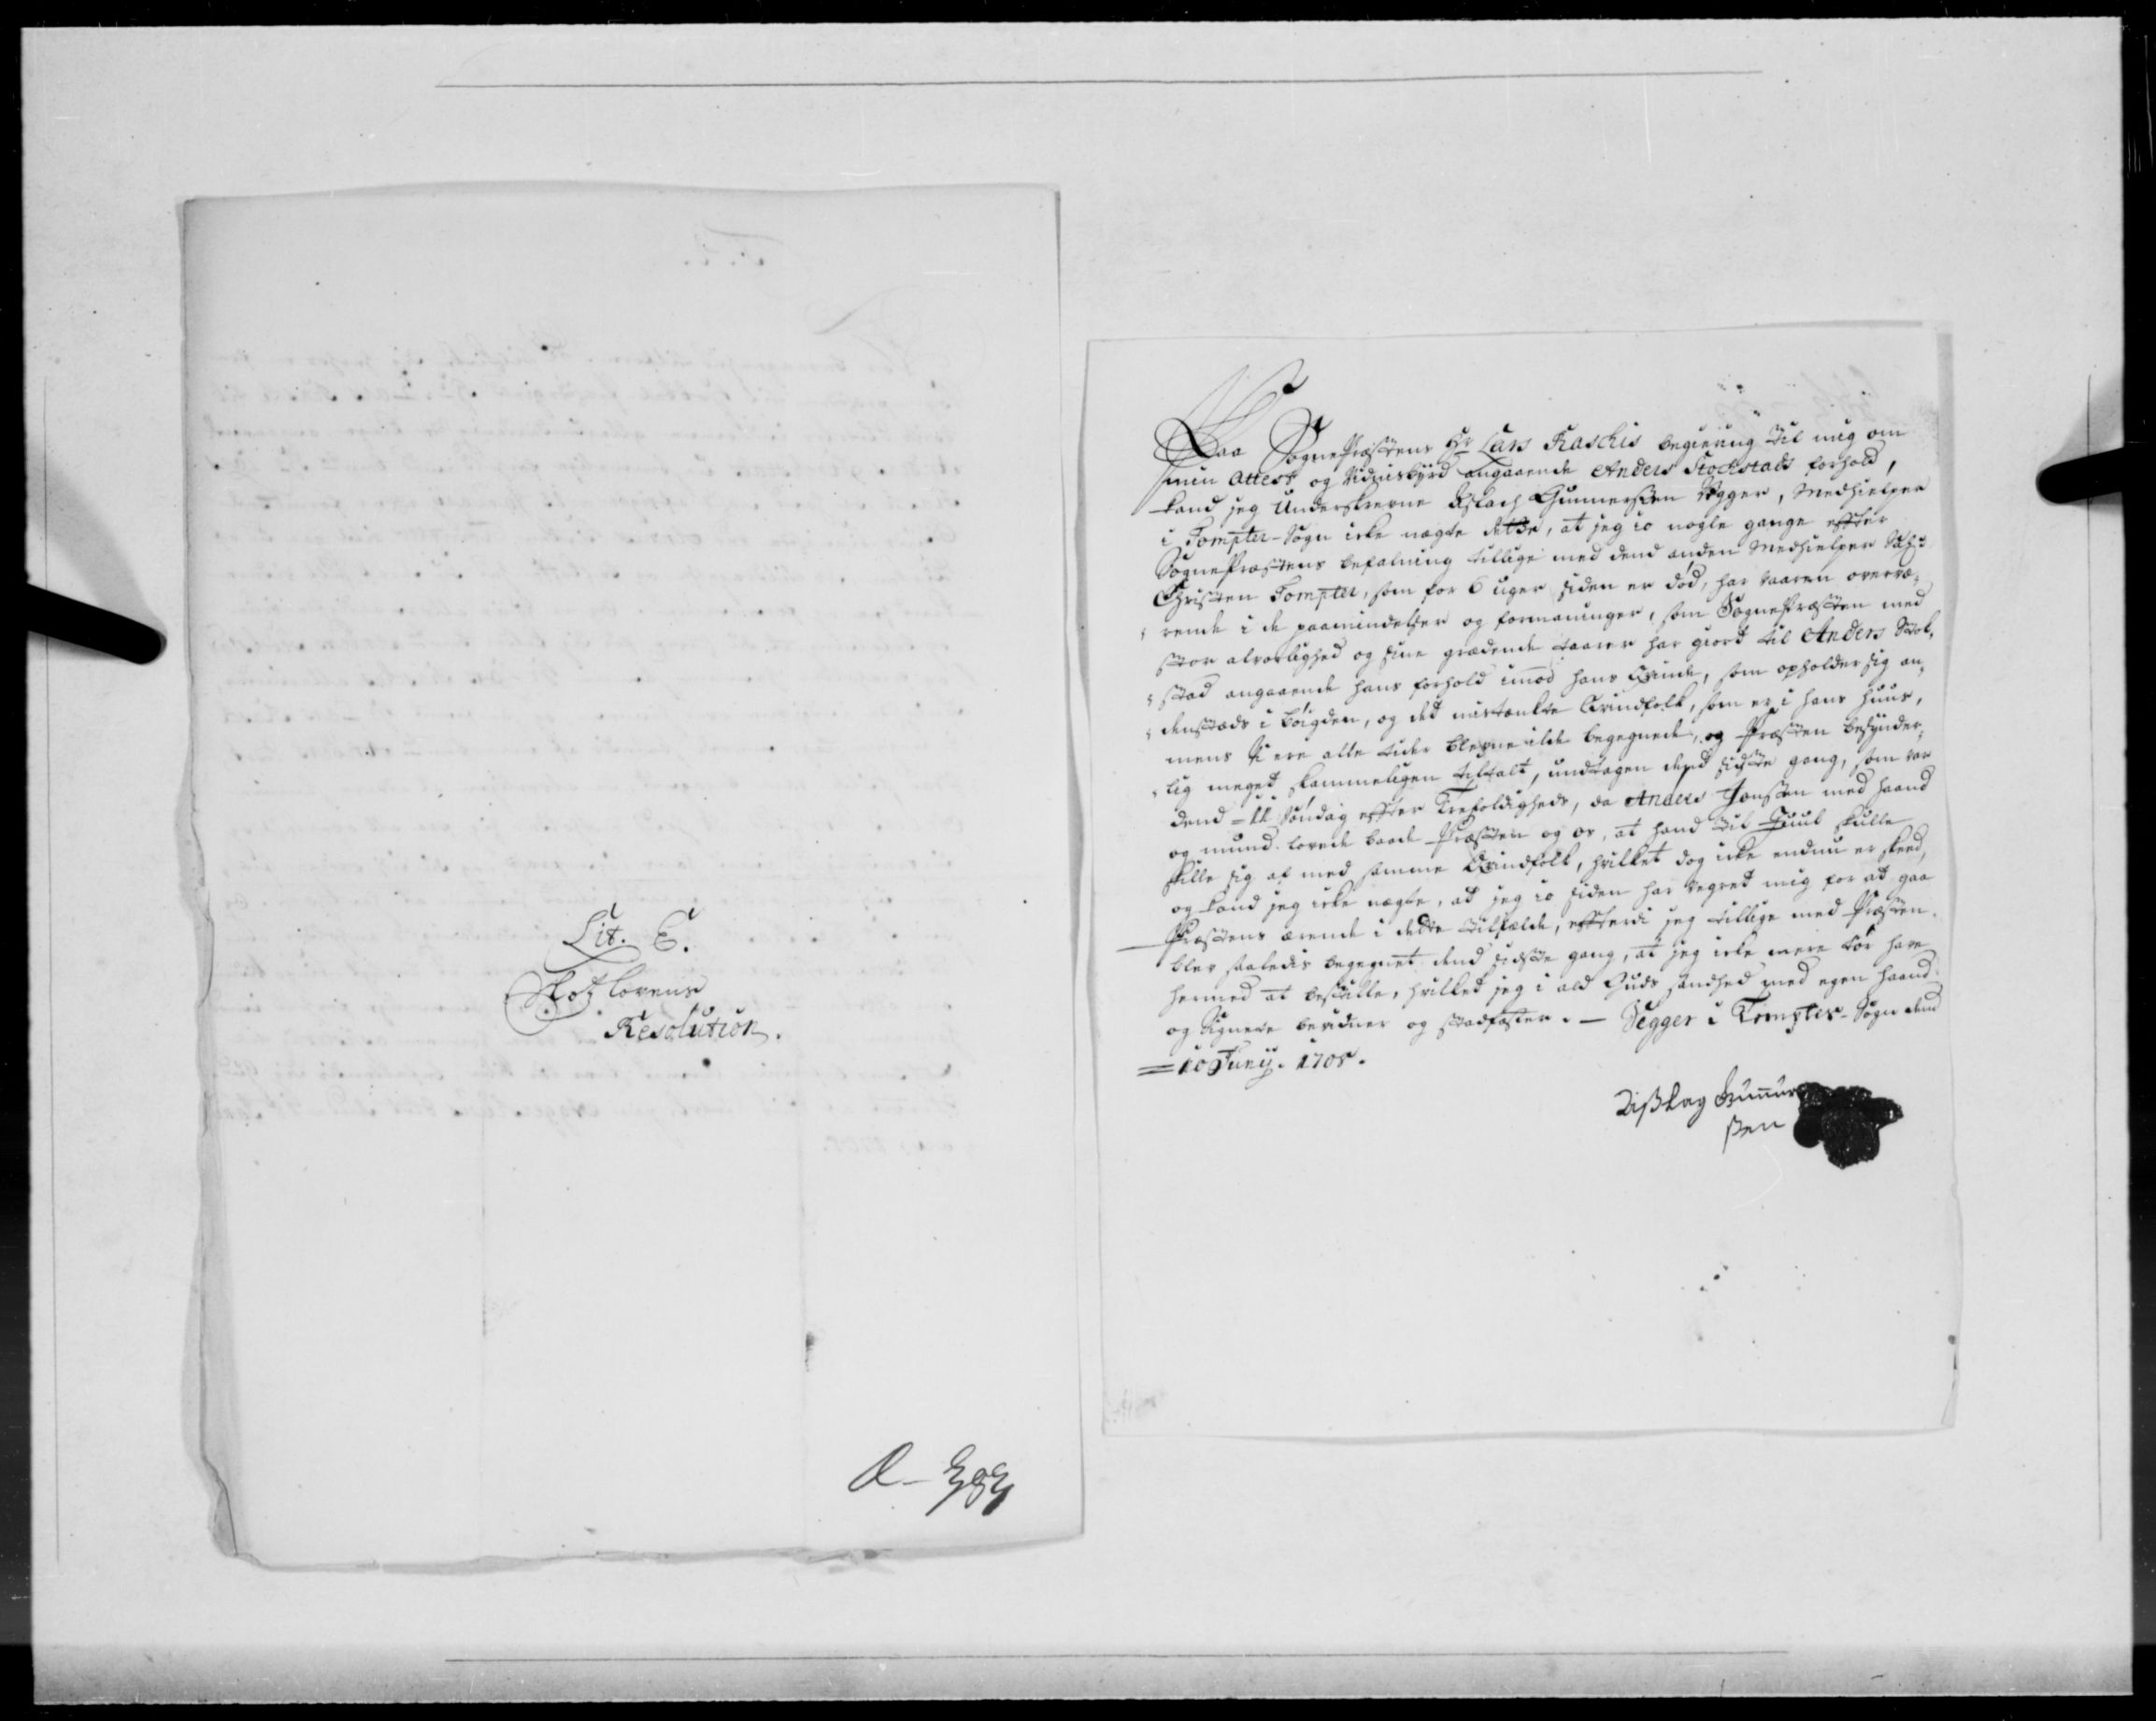 Lit. C.
Resolution.
Paa SognePræstens Hr Lars Raschis begiering til mig om
min Attest og Vidnisbyrd angaaende Anders Stockstads forhold,
kand jeg Underskrevne Aslach Gunnersen Segger, Medhielper
i Tompter-Sogn icke nægte dette, at jeg io nogle gange efter
SognePræstens befalning tillige med dend anden Medhielper
Christen Tompter, som for 6 uger siden er död, har vaaren overvæ-
rende i de paamindelser og formaninger, som SognePræsten med
stor alvorlighed og sine grædende taarer har giort til Anders Stok-
stad angaaende hans forhold imod hans Qvinde, som opholder sig an-
denstæds i böigden, og det mistænkte Qvindfolk, som er i hans huus,
mens Vi ere alle tider blevne ilde begegnede, og Præsten besynder-
lig meget skammeligen tiltalt, undtagen dend sidste gang, som var
dend = 11 Söndag efter Trefoldigheds, da Anders Jonsen med haand
og mund lovede baade Præsten og os, at hand til Juul skulle
skille sig af med samme Qvindfolk, hvilket dog icke endnu er skeed,
og kand jeg icke nægte, at jeg io siden har vegret mig for at gaa
Præstens ærende i dette tilfælde, efterdi jeg tillige med Præsten
blev saaledis begegnet dend sidste gang, at jeg icke mere tör have
hermed at bestille, hvilket jeg i ald Guds sandhed med egen haand
og Signete bevidner og stadfæster. - Segger i Tompter-Sogn dend
= 10 Junij. 1705.
Aißlag Gunnur
ßen